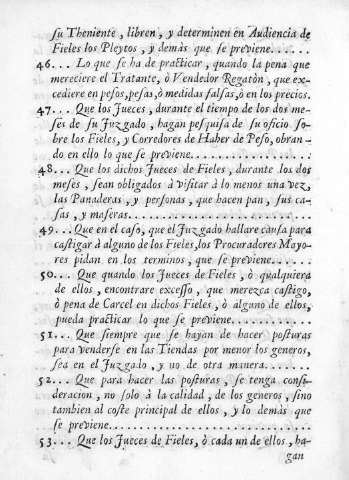 su Theniente, libren, y determinen en Audiencia de
Fieles los Pleytos, y demàs que se previene......
46... Lo que se ha de practicar, quando la pena que
mereciere el Tratante, ò Vendedor Regatòn, que ex-
cediere en pesos, pesas, ò medidas falsas, ò en los precios.
47... Que los Jueces, durante el tiempo de los dos me-
ses de su Juzgado, hagan pesquisa de su oficio so-
bre los Fieles, y Corredores de Haber de Peso, obran-
do en ello lo que se previene...................
48... Que los dichos Jueces de Fieles, durante los dos
meses, sean obligados à visitar à lo menos una vez,
las Panaderas, y personas, que hacen pan, sus ca-
sas, y maseras...........................
49... Que en el caso, que el Juzgado hallare causa para
castigar à alguno de los Fieles, los Procuradores Mayo-
res pidan en los terminos, que se previene......
50... Que quando los Jueces de Fieles, ò qualquiera
de ellos, encontrare excesso, que merezca castigo,
ò pena de Carcel en dichos Fieles, ò alguno de ellos,
pueda practicar lo que se previene..............
51... Que siempre que se hayan de hacer posturas
para venderse en las Tiendas por menor los generos,
sea en el Juzgado, y no de otra manera.........
52... Que para hacer las posturas, se tenga consi-
deracion, no solo à la calidad, de los generos, sino
tambien al coste principal de ellos, y lo demàs que
se previene...........................
53... Que los Jueces de Fieles, ò cada un de ellos, ha-
gan